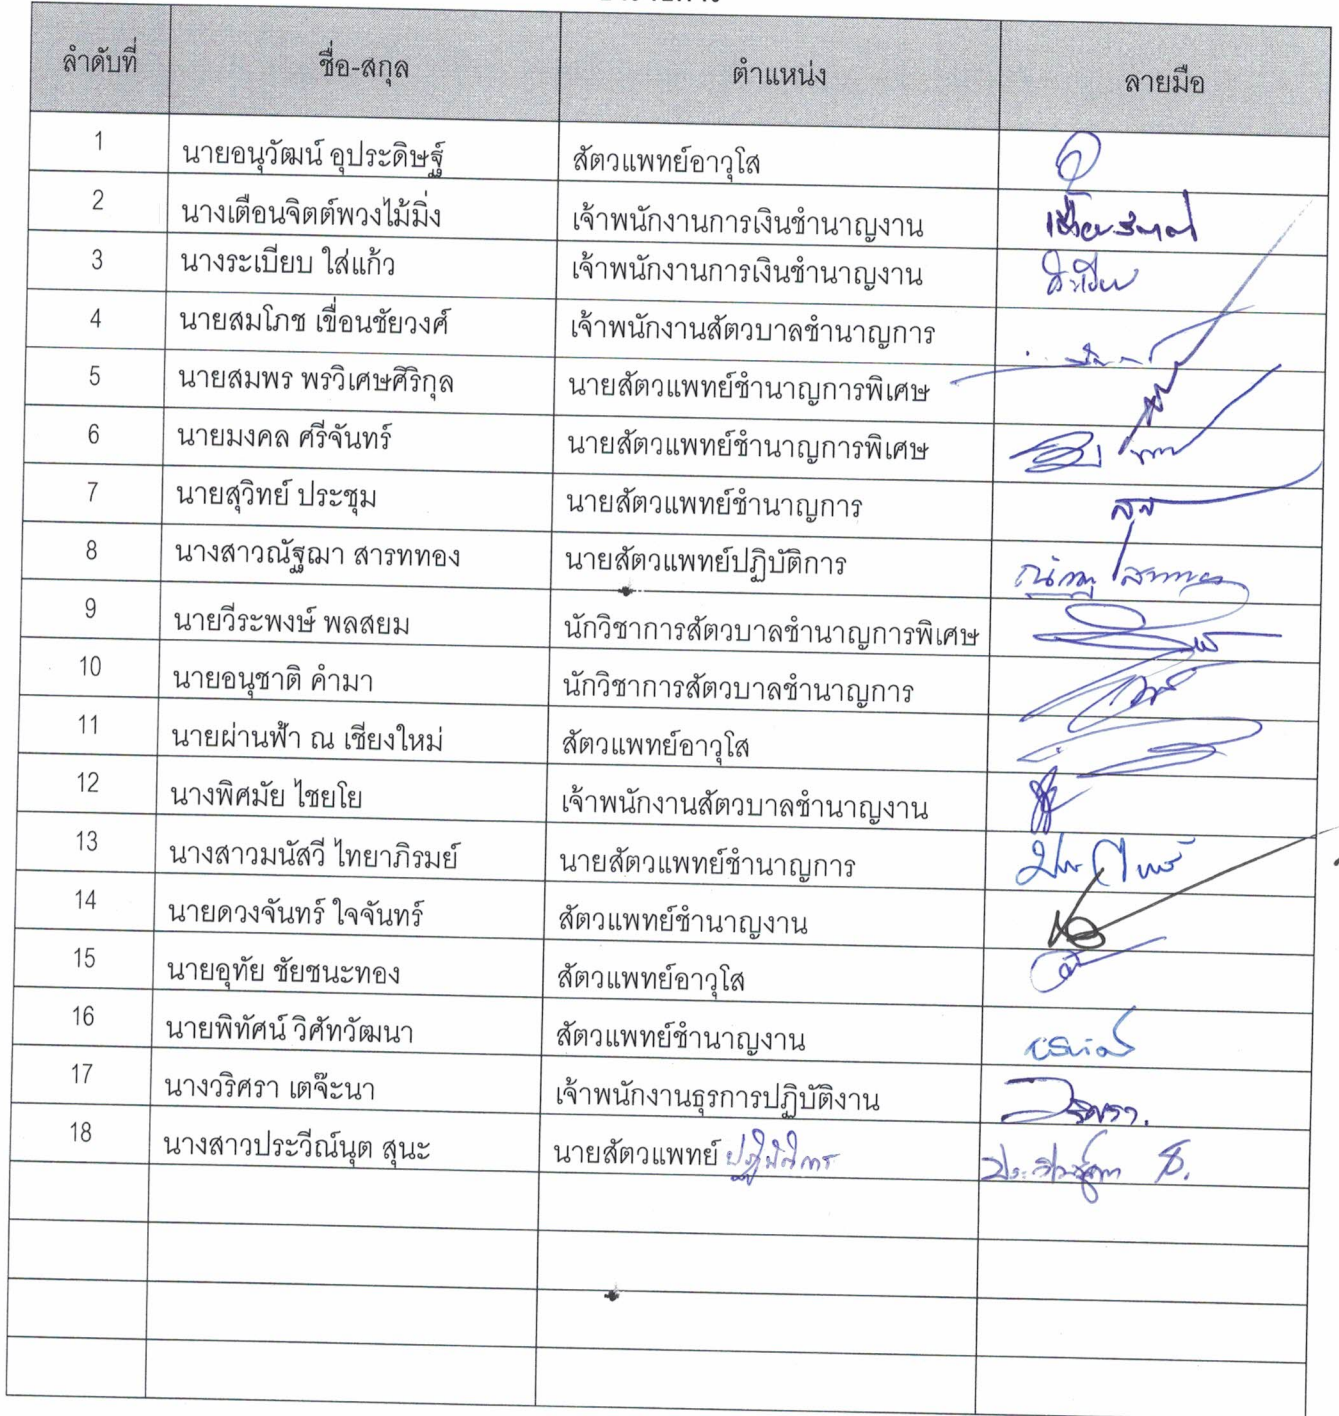 ลำดับที่ ชื่อ-สกุล ตำแหน่ง ลายมือ
1 นายอนุวัฒน์ อุประดิษฐ์ สัตวแพทย์อาวุโส
2 นางเตือนจิตต์พวงไม้มิ่ง เจ้าพนักงานการเงินชำนาญงาน
3 นางระเบียบ ใส่แก้ว เจ้าพนักงานการเงินชำนาญงาน ระเบียบ
4 นายสมโภช เขื่อนชัยวงศ์ เจ้าพนักงานสัตวบาลชำนาญการ
5 นายสมพร พรวิเศษศิริกุล นายสัตวแพทย์ชำนาญการพิเศษ
6 นายมงคล ศรีจันทร์ นายสัตวแพทย์ชำนาญการพิเศษ
7 นายสุวิทย์ ประชุม นายสัตวแพทย์ชำนาญการ
8 นางสาวณัฐฌา สารททอง นายสัตวแพทย์ปฏิบัติการ
9 นายวีระพงษ์ พลสยม นักวิชาการสัตวบาลชำนาญการพิเศษ
10 นายอนุชาติ คำมา นักวิชาการสัตวบาลชำนาญการ
11 นายผ่านฟ้า ณ เชียงใหม่ สัตวแพทย์อาวุโส
12 นางพิศมัย ไชยโย เจ้าพนักงานสัตวบาลชำนาญงาน
13 นางสาวมนัสวี ไทยาภิรมย์ นายสัตวแพทย์ชำนาญการ
14 นายดวงจันทร์ ใจจันทร์ สัตวแพทย์ชำนาญงาน
15 นายอุทัย ชัยชนะทอง สัตวแพทย์อาวุโส
16 นายพิทัศน์ วิศัทวัฒนา สัตวแพทย์ชำนาญงาน
17 นางวริศรา เตจ๊ะนา เจ้าพนักงานธุรการปฏิบัติงาน วริศรา.
18 นางสาวประวีณ์นุต สุนะ นายสัตวแพทย์ ปฏิบัติการ